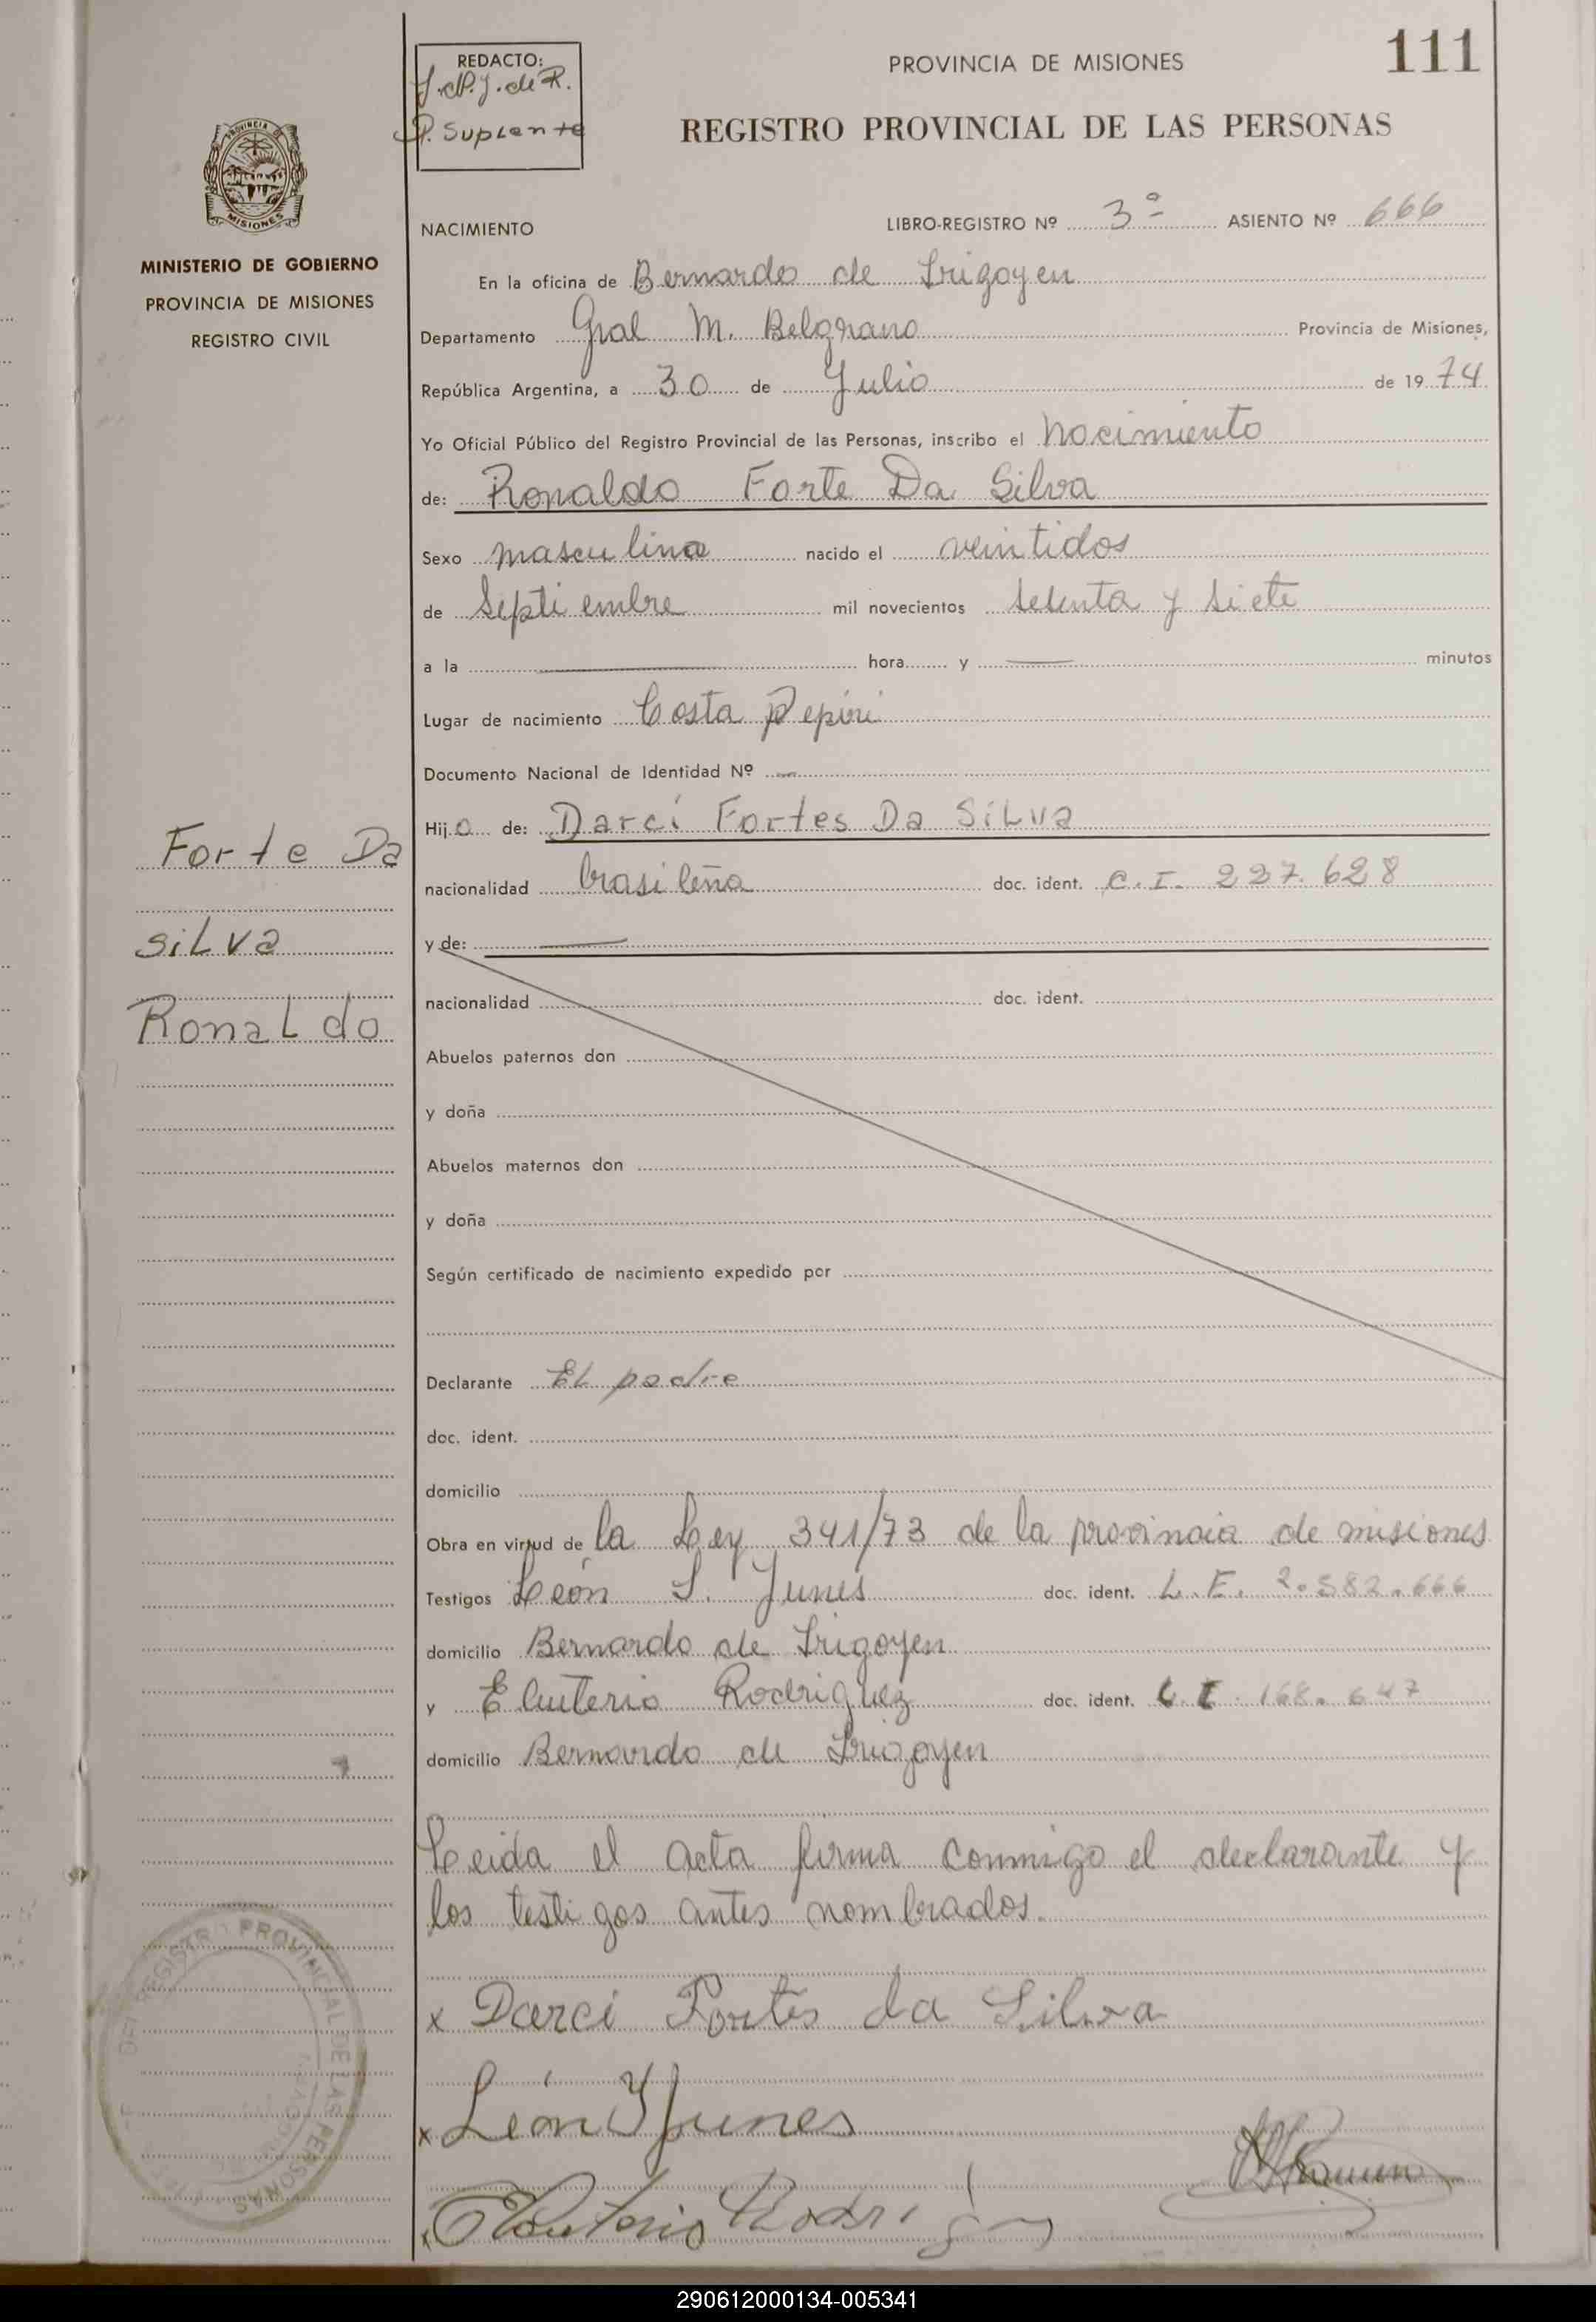 111
REDACTO:
P. Suplente
PROVINCIA DE MISIONES
REGISTRO PROVINCIAL DE LAS PERSONAS
PROVINCIA
MISIONES
MINISTERIO DE GOBIERNO
PROVINCIA DE MISIONES
REGISTRO CIVIL
NACIMIENTO LIBRO-REGISTRO Nº 3º ASIENTO Nº 666
En la oficina de Bernardo de Irigoyen
Departamento Gral M. Belgrano Provincia de Misiones,
República Argentina, a 30 de Julio de 1974
Yo Oficial Público del Registro Provincial de las Personas, inscribo el Nacimiento
de: Ronaldo Forte Da Silva
Sexo masculino nacido el veintidos
de Septiembre mil novecientos setenta y siete
a la hora y minutos
Lugar de nacimiento Costa Pepiri
Documento Nacional de Identidad Nº —
Hijo de: Darci Fortes Da Silva
nacionalidad brasileña doc. ident. C.I. 227.628
y de: —
nacionalidad doc. ident.
Abuelos paternos don
y doña
Abuelos maternos don
y doña
Según certificado de nacimiento expedido por
Declarante El padre
doc. ident.
domicilio
Obra en virtud de la Ley 341/73 de la provincia de misiones
Testigos León S. Junes doc. ident. L.E. 2.582.666
domicilio Bernardo de Irigoyen
y Eluterio Rodriguez doc. ident. C.I. 168.647
domicilio Bernardo de Irigoyen
Leida el acta firma conmigo el declarante y
los testigos antes nombrados.
x Darci Fortes da Silva
x León Junes
Forte Da
Silva
Ronaldo
REGISTRO PROVINCIAL DE LAS PERSONAS
290612000134-005341